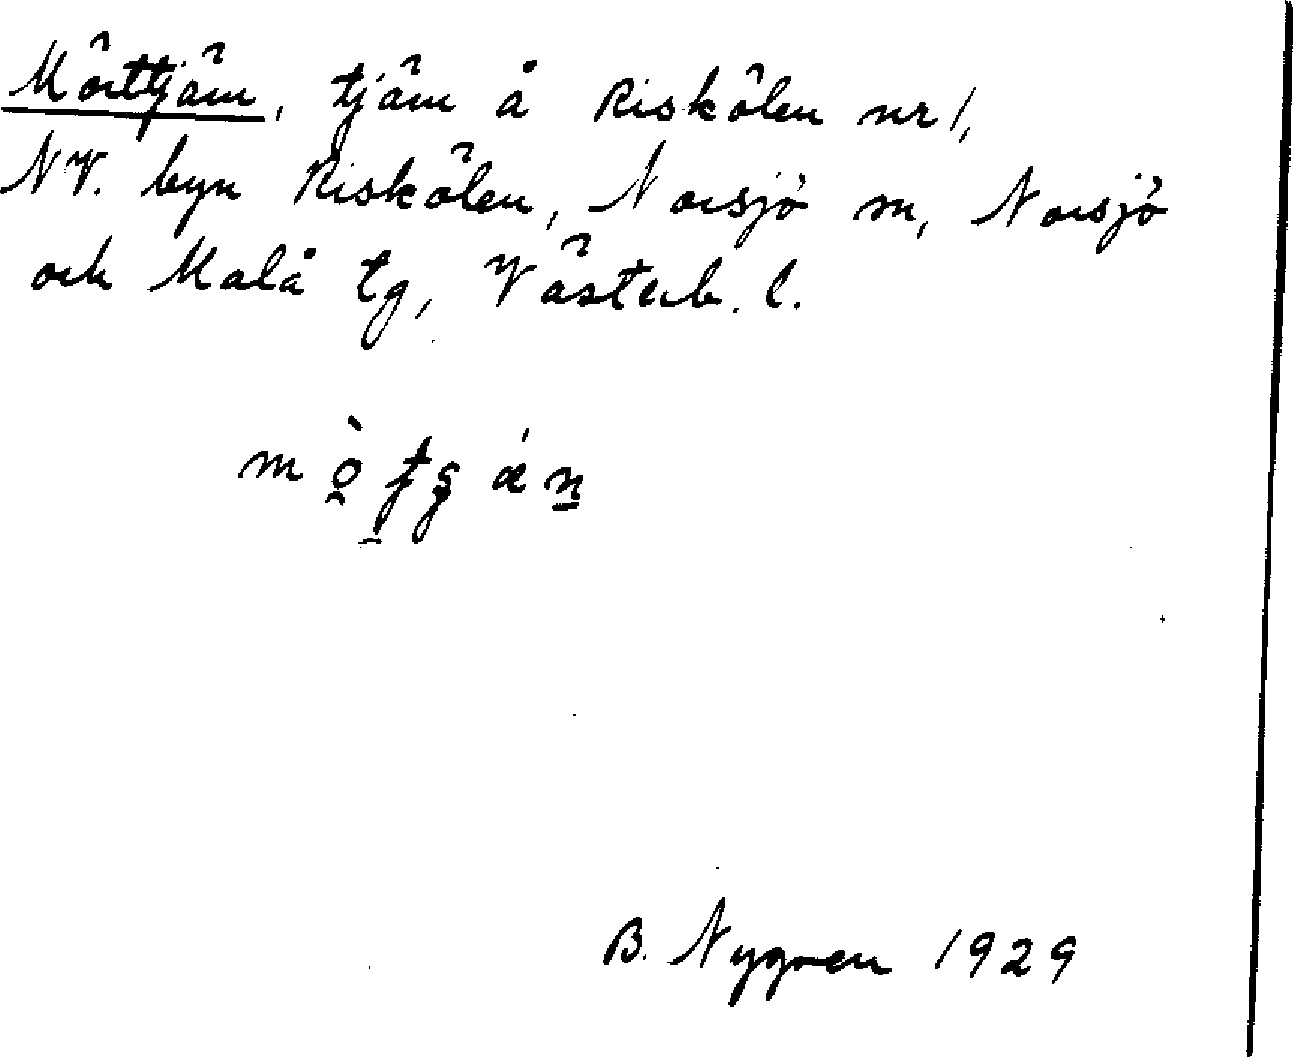 Mörttjärn, tjärn å Riskölen nr 1,
NV. byn Riskölen, Norsjö sn, Norsjö
och Malå tg, Västerb. l.
B. Nygren 1929